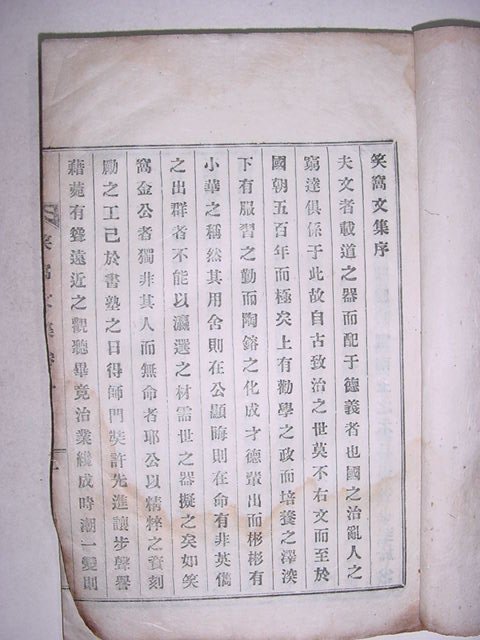 笑窩文集序
夫文者載道之器而配于德義者也國之治亂人之
窮達俱係于此故自古致治之世莫不右文而至於
國朝五百年而極矣上有勸學之政而培養之澤浹
下有服習之勤而陶鎔之化成才德輩出而彬彬有
小華之稱然其用舍則在公顯晦則在命有非英儁
之出群者不能以瀛選之材需世之器擬之矣如笑
窩金公者獨非其人而無命者耶公以精粹之資刻
勵之工已於書塾之日得師門奖許先進讓步聲譽
藉菀有聲遠近之觀聽畢竟治業纔成時潮一變則
笑窩文集